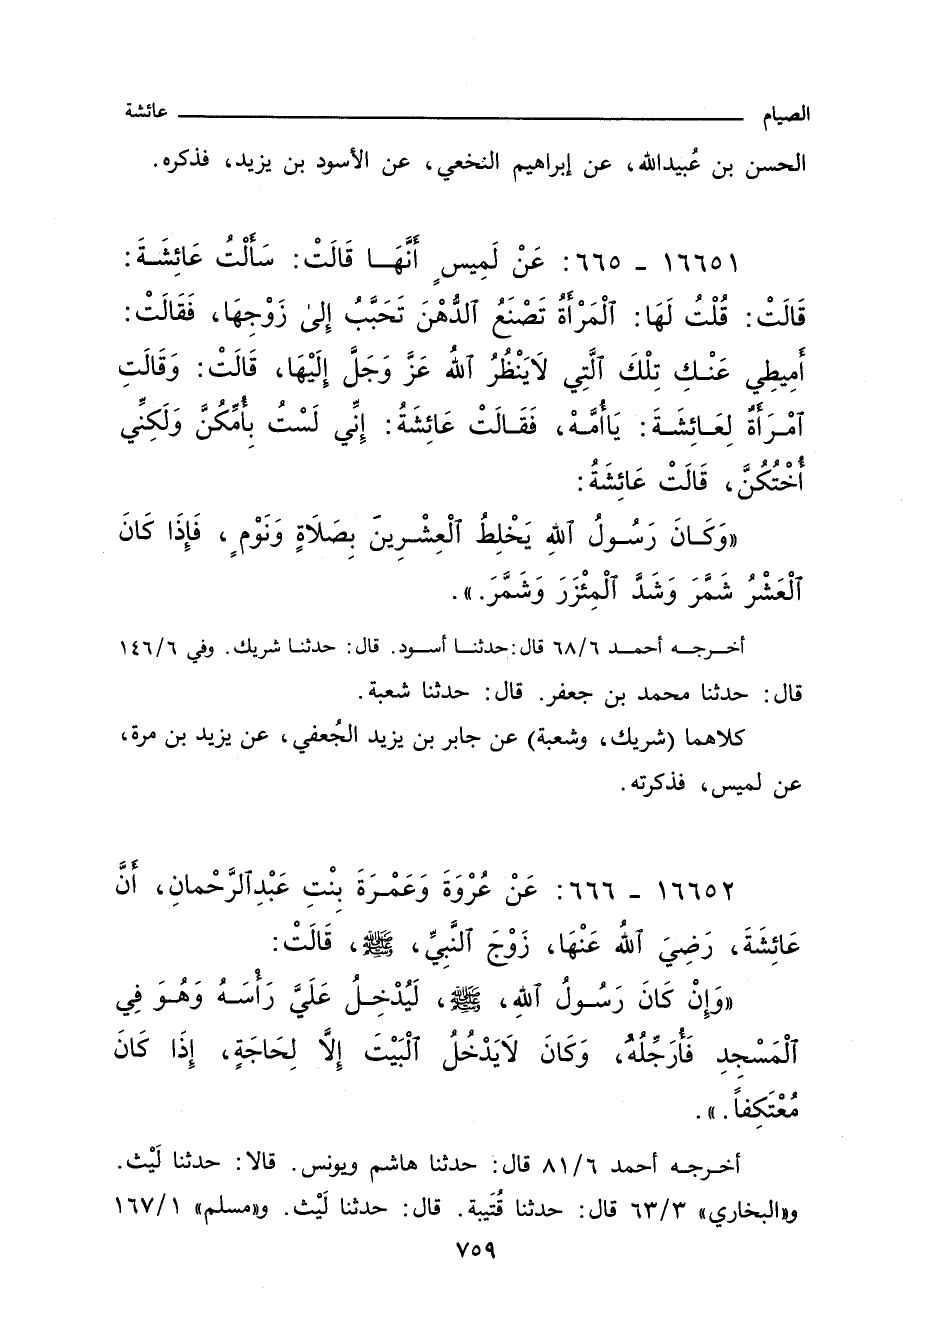 الصيام عائشة
الحسن بن عُبيدالله، عن إبراهيم النخعي، عن الأسود بن يزيد، فذكره.
١٦٦٥١ - ٦٦٥: عَنْ لَمِيسٍ أَنَّهَا قَالَتْ: سَأَلْتُ عَائِشَةَ:
قَالَتْ: قُلْتُ لَهَا: ٱلْمَرْأَةُ تَصْنَعُ ٱلدُّهْنَ تَحَبَّبُ إِلىٰ زَوْجِهَا، فَقَالَتْ:
أَمِيطِي عَنْكِ تِلْكَ ٱلَّتِي لَايَنْظُرُ ٱللهُ عَزَّ وَجَلَّ إِلَيْهَا، قَالَتْ: وَقَالَتِ
ٱمْرَأَةٌ لِعَائِشَةَ: يَاأُمَّهْ، فَقَالَتْ عَائِشَةُ: إِنِّي لَسْتُ بِأُمِّكُنَّ وَلَكِنِّي
أُخْتُكُنَّ، قَالَتْ عَائِشَةُ:
«وَكَانَ رَسُولُ ٱللهِ يَخْلِطُ ٱلْعِشْرِينَ بِصَلَاةٍ وَنَوْمٍ، فَإِذَا كَانَ
ٱلْعَشْرُ شَمَّرَ وَشَدَّ ٱلْمِئْزَرَ وَشَمَّرَ.».
أخرجه أحمد ٦٨/٦ قال:حدثنا أسود. قال: حدثنا شريك. وفي ١٤٦/٦
قال: حدثنا محمد بن جعفر. قال: حدثنا شعبة.
كلاهما (شريك، وشعبة) عن جابر بن يزيد الجُعفي، عن يزيد بن مرة،
عن لميس، فذكرته.
١٦٦٥٢ - ٦٦٦: عَنْ عُرْوَةَ وَعَمْرَةَ بِنْتِ عَبْدِٱلرَّحْمانِ، أَنَّ
عَائِشَةَ، رَضِيَ ٱللهُ عَنْهَا، زَوْجَ ٱلنَّبِيِّ، ﷺ، قَالَتْ:
«وَإِنْ كَانَ رَسُولُ ٱللهِ، ﷺ، لَيُدْخِلُ عَلَيَّ رَأْسَهُ وَهُوَ فِي
ٱلْمَسْجِدِ فَأُرَجِّلُهُ، وَكَانَ لَايَدْخُلُ ٱلْبَيْتَ إِلَّا لِحَاجَةٍ، إِذَا كَانَ
مُعْتَكِفاً.».
أخرجه أحمد ٨١/٦ قال: حدثنا هاشم ويونس. قالا: حدثنا لَيْث.
و«البخاري» ٦٣/٣ قال: حدثنا قُتَيبة. قال: حدثنا لَيْث. و«مسلم» ١٦٧/١
٧٥٩